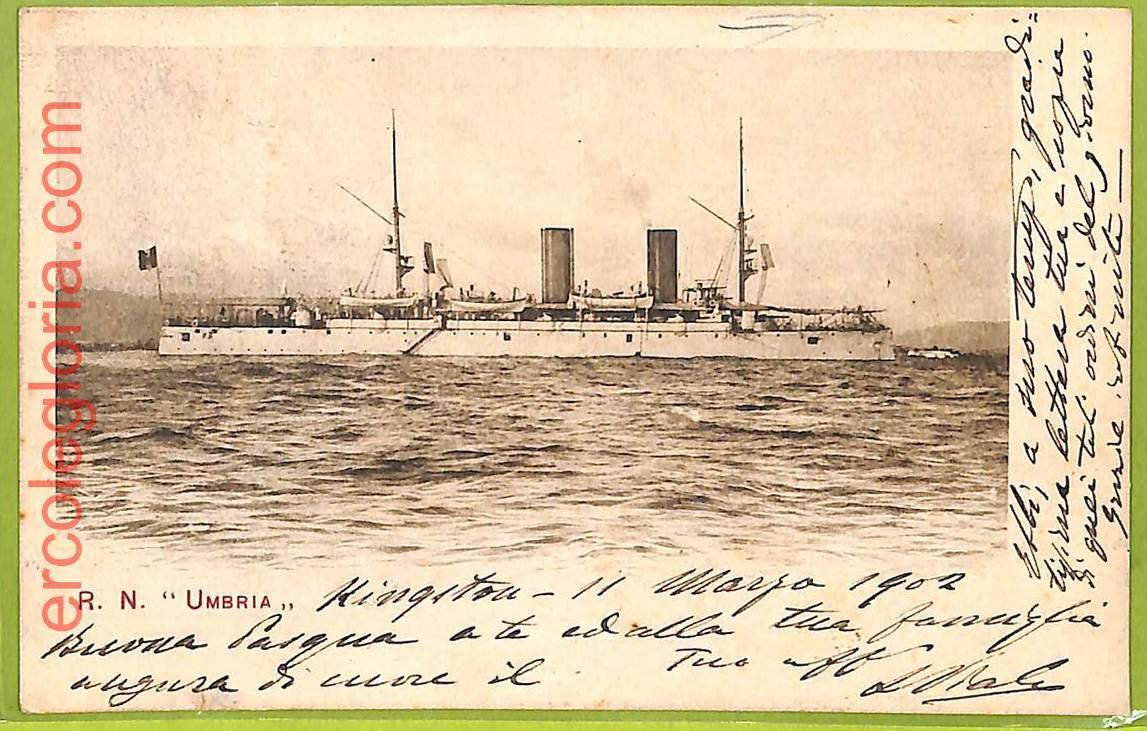 ercolegloria.com
R. N. “ UMBRIA „
Kingston - 11 Marzo 1902
Buona Pasqua a te ed alla tua famiglia
augura di cuore il Tuo aff
Ebbi, a suo tempo, gradi=
tissima lettera tua e copia
di quei tali ordini del giorno.
Grazie infinite